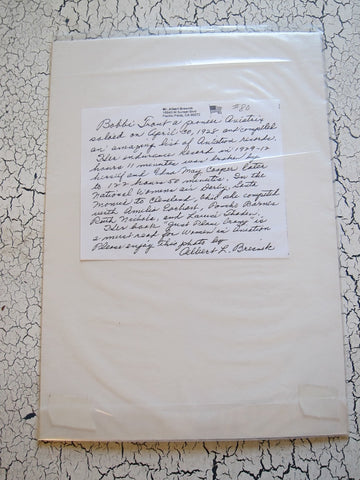 Mr. Albert Bresnik
Pacific Palis, CA 90272
#80
Bobbi Trout a pioneer Aviatrix
soloed on April 30, 1928 and compiled
an amazing list of Aviation records.
Her endurance record in 1929-12
hours 11 minutes was broken by
herself and Edna May Cooper later
to 122 hours 50 minutes. In the
National Womens air Derby, Santa
Monica to Cleveland, she competed
with Amelia Earhart, Poncho Barnes
Ruth Nichols, and Louise Thaden.
Her book "Just Plane Crazy" is
a must read for Women in Aviation
Please enjoy this photo by
Albert L. Bresnik